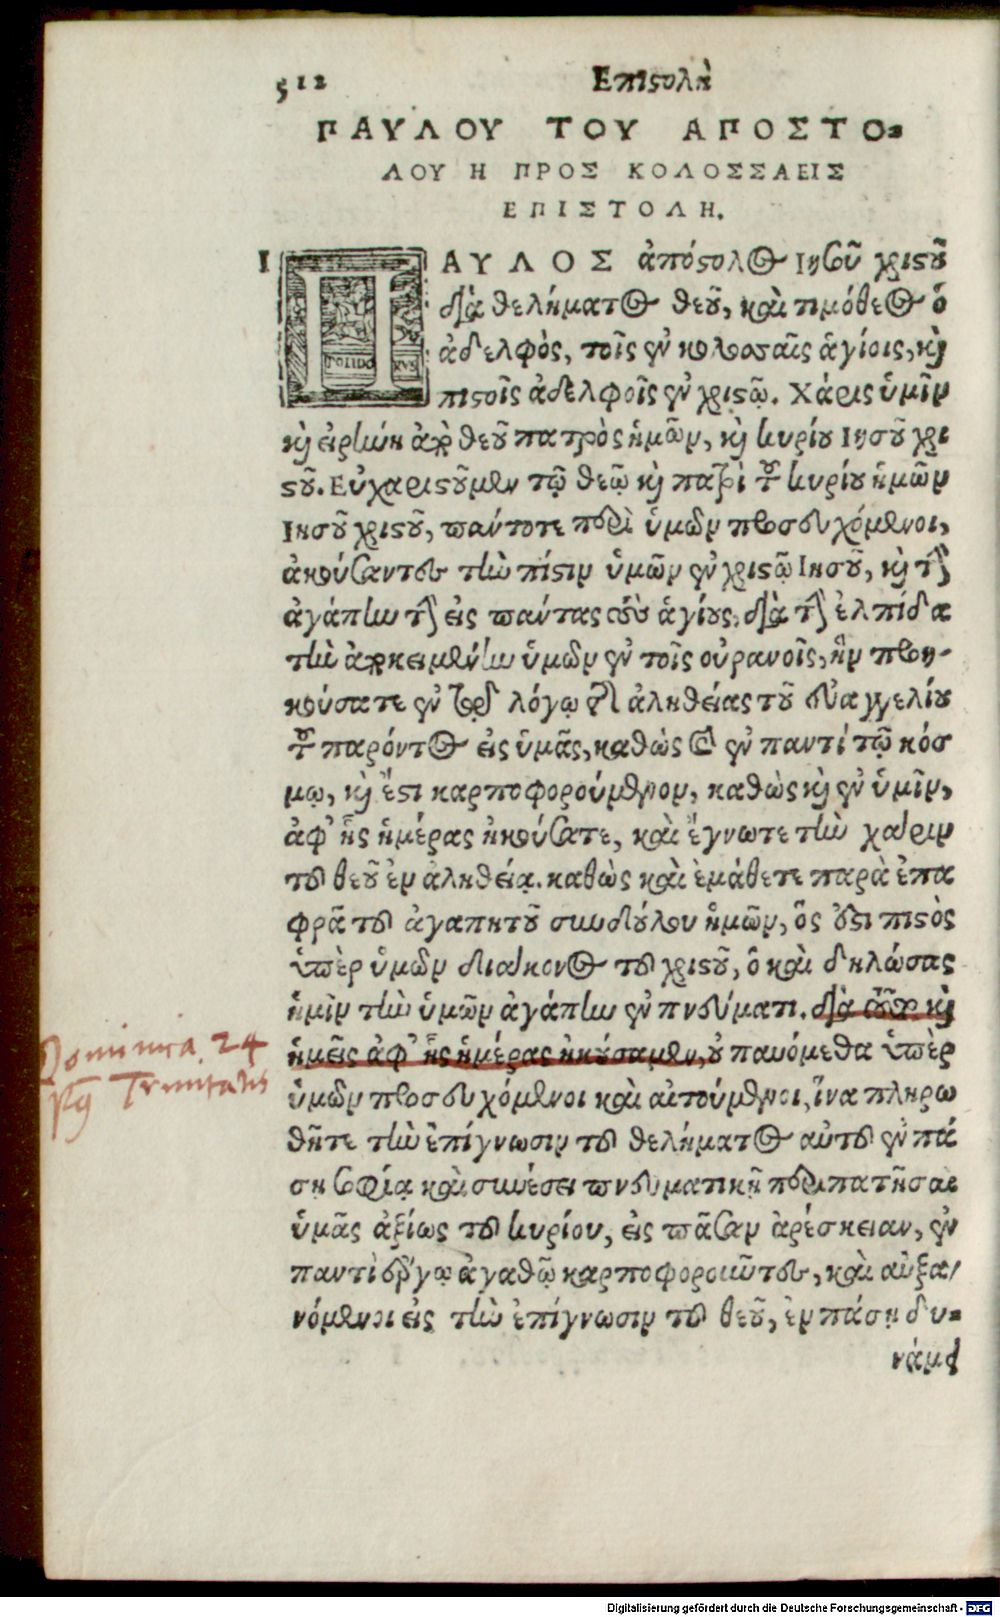 512 Επιστολὴ
ΠΑΥΛΟΥ ΤΟΥ ΑΠΟΣΤΟ=
ΛΟΥ Η ΠΡΟΣ ΚΟΛΟΣΣΑΕΙΣ
ΕΠΙΣΤΟΛΗ.
1 ΠΑΥΛΟΣ ἀπόστολος Ιησοῦ χριστοῦ
διὰ θελήματος θεοῦ, καὶ τιμόθεος ὁ
ἀδελφὸς, τοῖς ἐν κολοσσαῖς ἁγίοις, καὶ
πιστοῖς ἀδελφοῖς ἐν χριστῷ. Χάρις ὑμῖν
καὶ εἰρήνη ἀπὸ θεοῦ πατρὸς ἡμῶν, καὶ κυρίου Ιησοῦ χρι
στοῦ. Εὐχαριστοῦμεν τῷ θεῷ καὶ πατρὶ τοῦ κυρίου ἡμῶν
Ιησοῦ χριστοῦ, πάντοτε περὶ ὑμῶν προσευχόμενοι,
ἀκούσαντες τὴν πίστιν ὑμῶν ἐν χριστῷ Ιησοῦ, καὶ τὴν
ἀγάπην τὴν εἰς πάντας τοὺς ἁγίους, διὰ τὴν ἐλπίδα
τὴν ἀποκειμένην ὑμῶν ἐν τοῖς οὐρανοῖς, ἣν προη-
κούσατε ἐν τῷ λόγῳ τῆς ἀληθείας τοῦ εὐαγγελίου
τοῦ παρόντος εἰς ὑμᾶς, καθὼς καὶ ἐν παντί τῷ κόσ
μῳ, καὶ ἔστι καρποφορούμενον, καθὼς καὶ ἐν ὑμῖν,
ἀφ' ἧς ἡμέρας ἠκούσατε, καὶ ἔγνωτε τὴν χάριν
τοῦ θεοῦ ἐν ἀληθείᾳ. καθὼς καὶ ἐμάθετε παρὰ ἐπα
φρᾶ τοῦ ἀγαπητοῦ συνδούλου ἡμῶν, ὅς ἐστι πιστὸς
ὑπὲρ ὑμῶν διάκονος τοῦ χριστοῦ, ὁ καὶ δηλώσας
ἡμῖν τὴν ὑμῶν ἀγάπην ἐν πνεύματι. διὰ τοῦτο καὶ
ἡμεῖς ἀφ' ἧς ἡμέρας ἠκούσαμεν, οὐ παυόμεθα ὑπὲρ
ὑμῶν προσευχόμενοι καὶ αἰτούμενοι, ἵνα πληρω
θῆτε τὴν ἐπίγνωσιν τοῦ θελήματος αὐτοῦ ἐν πά
σῃ σοφίᾳ καὶ συνέσει πνευματικῇ περιπατῆσαι
ὑμᾶς ἀξίως τοῦ κυρίου, εἰς πᾶσαν ἀρέσκειαν, ἐν
παντὶ ἔργῳ ἀγαθῷ καρποφοροιῶτες, καὶ αὐξα/
νόμενοι εἰς τὴν ἐπίγνωσιν τοῦ θεοῦ, ἐν πάσῃ δυ=
νάμει
Dominica. 24
Trinitatis
TOLIDO
RVS
Digitalisierung gefördert durch die Deutsche Forschungsgemeinschaft - DFG